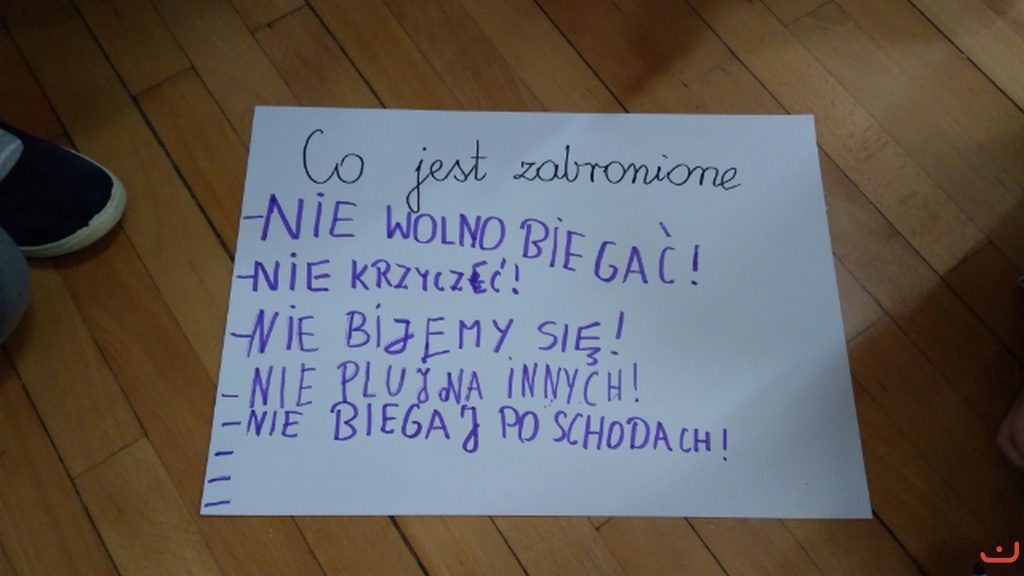 Co jest zabronione
- NIE WOLNO BIEGAĆ!
- NIE KRZYCZEĆ!
- NIE BIJEMY SIĘ!
- NIE PLUJ NA INNYCH!
- NIE BIEGAJ PO SCHODACH!
-
-
-